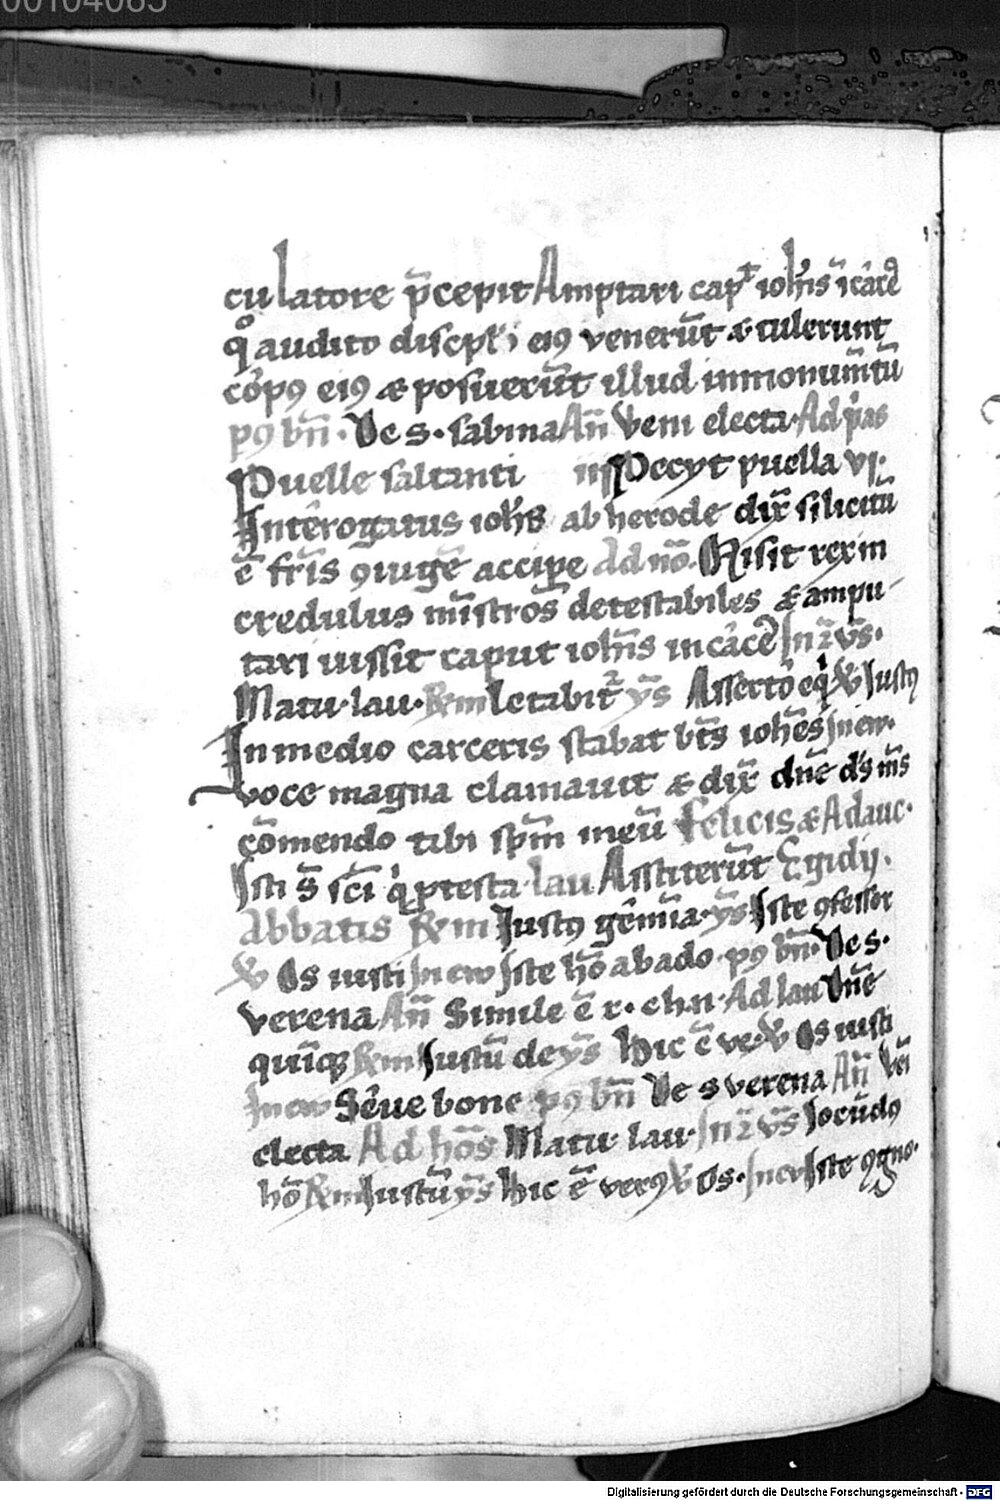 00104065
culatore p̄cepit Amptari cap̄ ioh̄is ī cācē
q̊ audito discpl'i ei9 venerūt & tulerunt
cōp9 ei9 & posuerūt illud inmonum̄tū
p9 bn̄. De s. sabina An̄ Veni electa. Ad p̄as
Puelle saltanti iii Pecyt puella vi.
Intērogatus ioh̄s ab herode dix̄ silicitū
ē fr̄is 9iugē accipe ad no. Misit rex in
credulus mīstros̄ detestabiles & ampu
tari iussit caput ioh̄is in cācē In 2 vs̄.
Matu. lau. R m letabit̄ ys̄ Assertō eq' V Just9
In medio carceris stabat bt̄s ioh̄es In ew.
voce magna clamavit & dix̄ dn̄e d's m̄s
cōmendo tibi sp̄m meū felicis & Adauc.
Isti s̄ sc̄i q' p testa. lau Assiterūt Egidij.
Abbatis R m Just9 gēmīa. ys̄ Iste 9fessor
V Os iusti In ew Iste hō abado. p9 bn̄. De s.
verena An̄ Simile ē r. ch.n. Ad lau Dn̄e
quīqz R m Justū de ys̄ Hic ē ve. V Os iusti
In ew Sēue bone p9 bn̄ De s verena An̄ Vēi
electa Ad hōs Matu. lau. In 2 vs̄ Jocūd9
hō R m Justū ys̄ Hic ē ver9 V Os. In ew Iste 9gno.
Digitalisierung gefördert durch die Deutsche Forschungsgemeinschaft - DFG